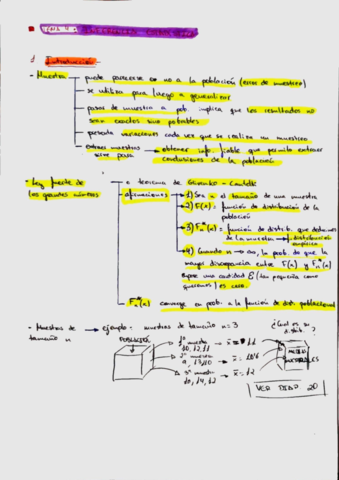 1 Introducción
- Muestra
puede parecerse o no a la población (error de muestreo)
se utiliza para luego a generalizar
pasar de muestra a pob. implica que los resultados no
serán exactos sino probables
presenta variaciones cada vez que se realiza un muestreo
extraer muestras → obtener info. fiable que permita extraer
sirve para conclusiones de la población
- Ley fuerte de
los grandes números
o teorema de Glivenko - Cantelli
afirmaciones
1) Sea n el tamaño de una muestra
2) F(x) = función de distribución de la
población
3) F*n(x) = función de distrib. que dedujamos
de la muestra → distribución
empírica
4) Cuando n → ∞, la prob. de que la
mayor discrepancia entre F(x) y F*n(x)
supere una cantidad ε (tan pequeña como
queramos) es cero.
F*n(x) converge en prob. a la función de dist. poblacional
- Muestras de
tamaño n
→ ejemplo - muestras de tamaño n = 3
POBLACIÓN
1ª muestra
10, 12, 11
2ª muestra
3ª muestra
10, 14, 12
x̄ = 11
x̄ = 12
¿Cuál es su
distrib.?
VER DIAP. 20